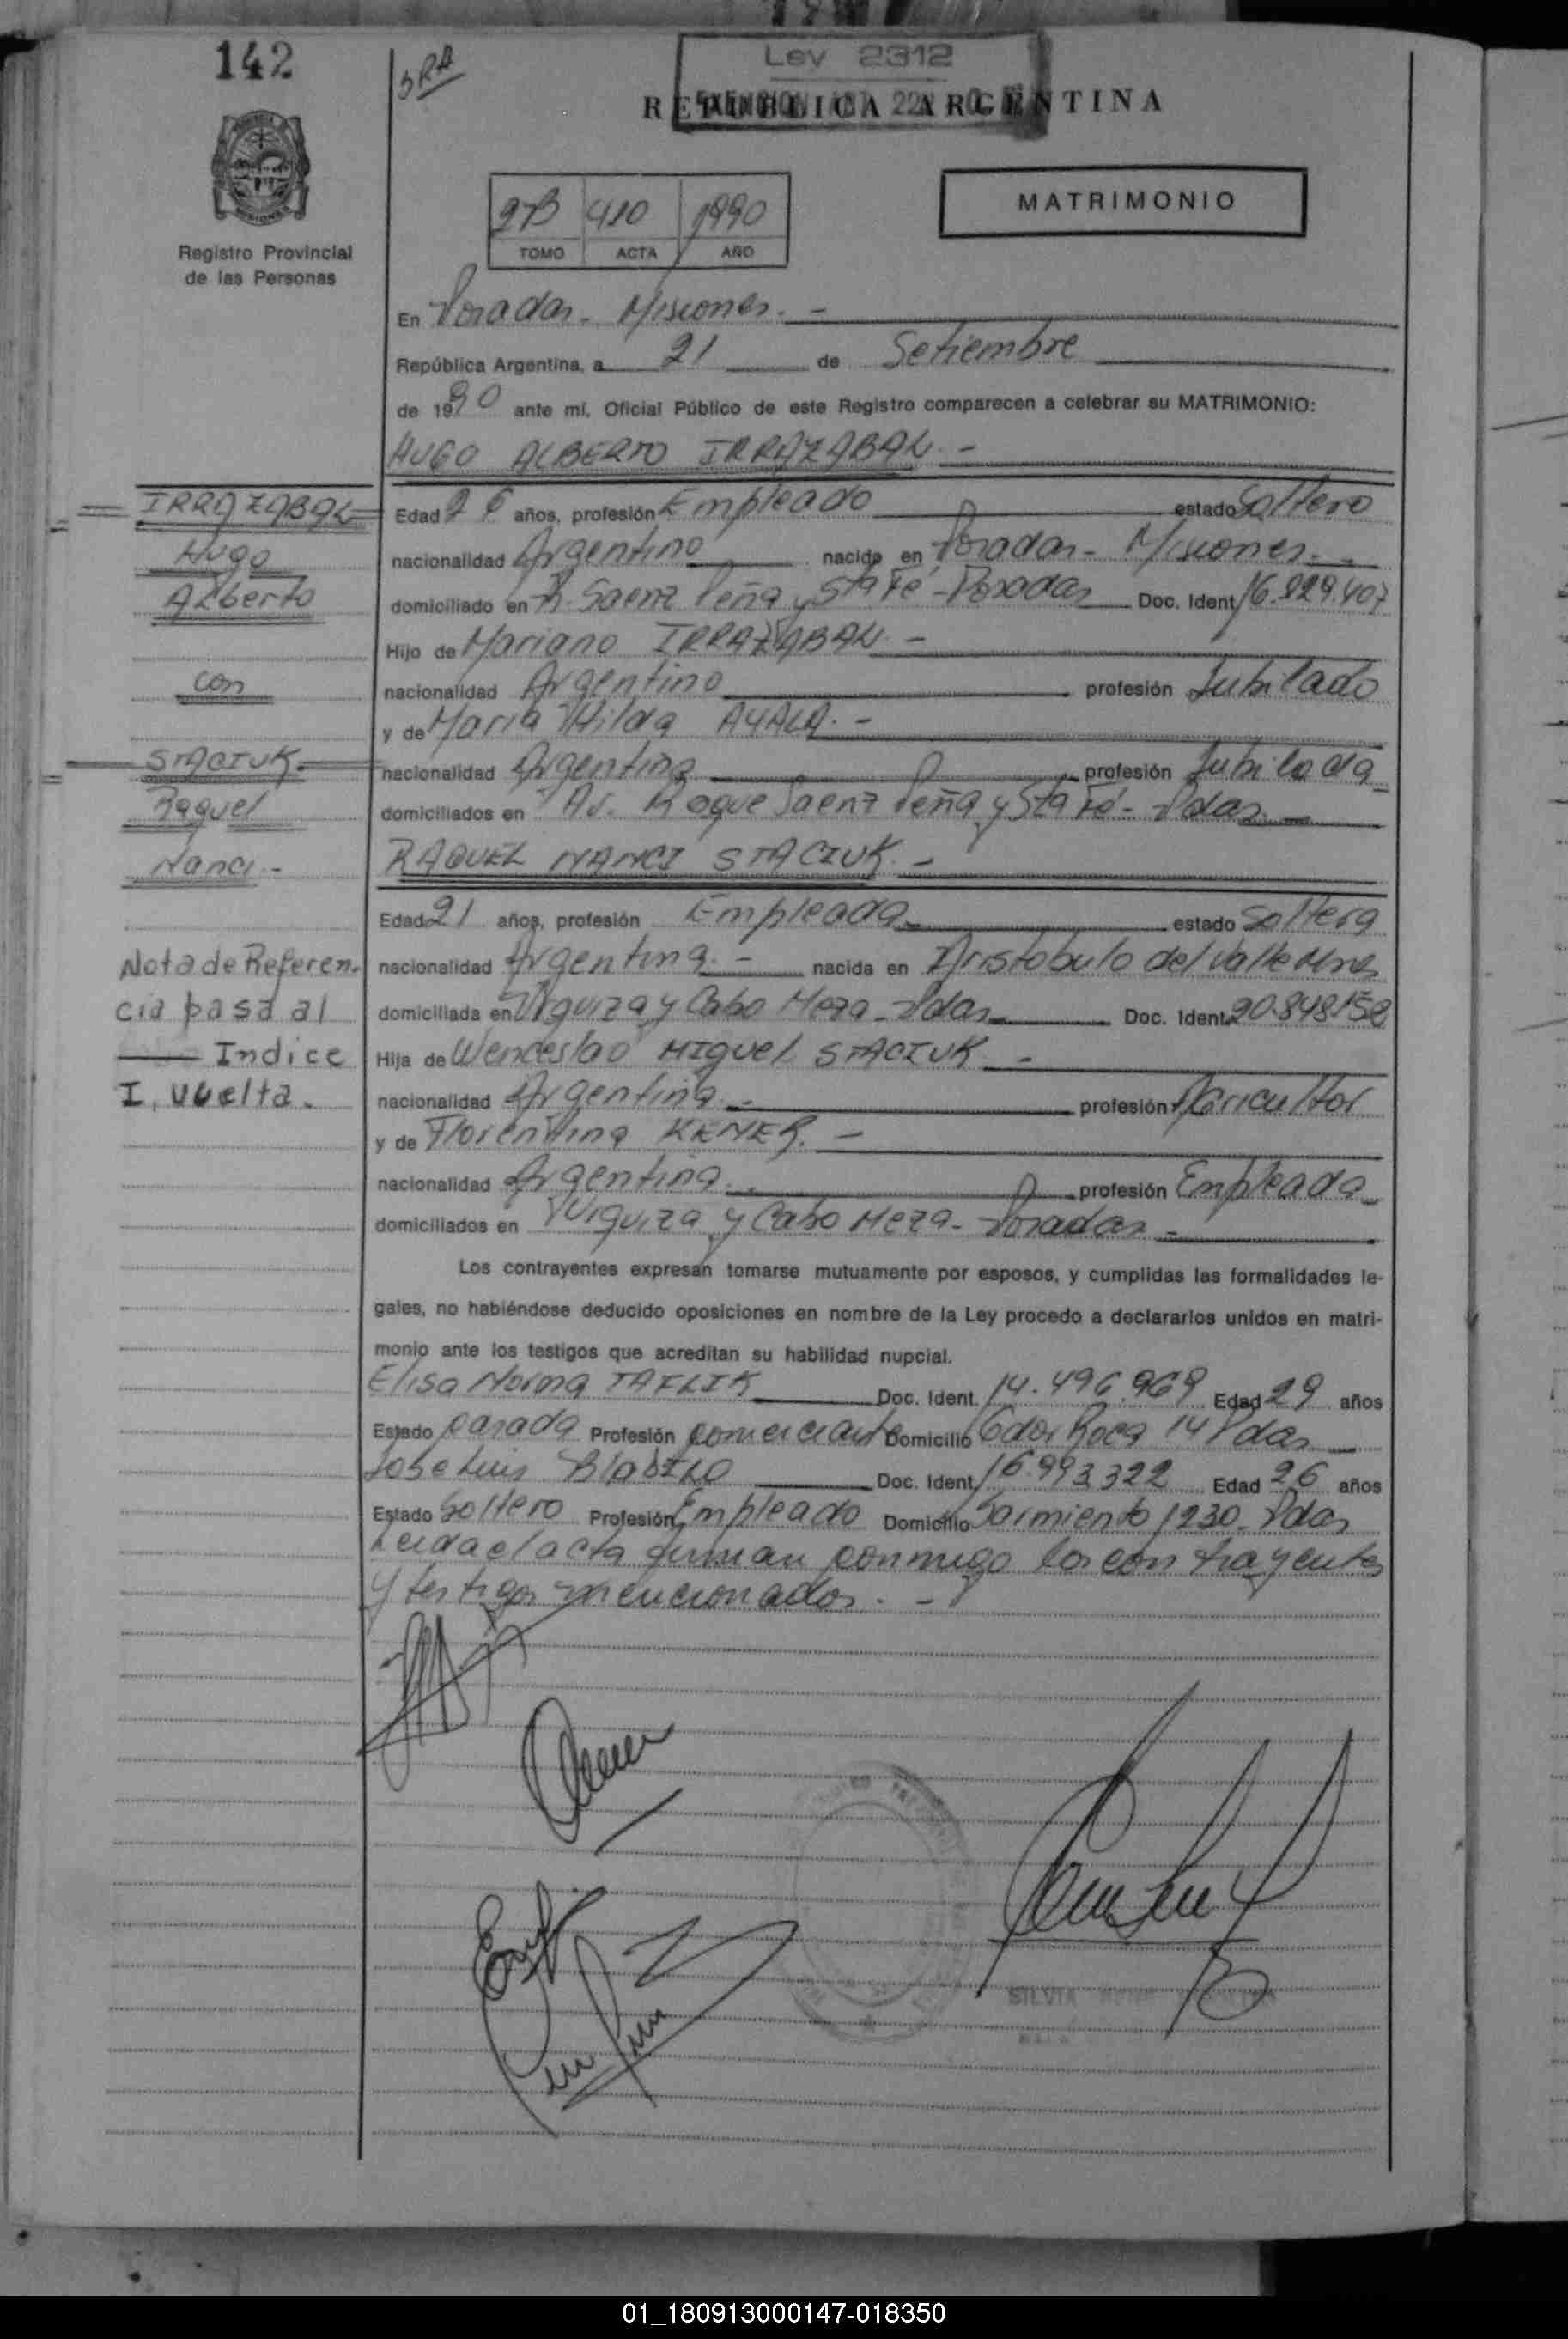 142
3RA
Ley 2312
REPUBLICA ARGENTINA
MATRIMONIO
2B 410 1990
TOMO ACTA AÑO
Registro Provincial
de las Personas
En Posadas - Misiones. -
República Argentina, a 21 de Setiembre
de 1990 ante mí, Oficial Público de este Registro comparecen a celebrar su MATRIMONIO:
HUGO ALBERTO IRRAZABAL. -
IRRAZABAL
Hugo
Alberto
con
STACIUK
Raquel
Nanci. -
Nota de Referen-
cia pasa al
Indice
I, vuelta.
Edad 26 años, profesión Empleado estado Soltero
nacionalidad Argentino nacido en Posadas - Misiones. -
domiciliado en R. Saenz Peña y Sta Fé - Posadas Doc. Ident 16.829.407
Hijo de Mariano IRRAZABAL. -
nacionalidad Argentino profesión Jubilado
y de Maria Hilda AYALA. -
nacionalidad Argentina profesión Jubilada
domiciliados en Av. Roque Saenz Peña y Sta Fé - Pdas. -
RAQUEL NANCI STACIUK. -
Edad 21 años, profesión Empleada estado Soltera
nacionalidad Argentina. - nacida en Aristobulo del Valle Mnes
domiciliada en Urquiza y Cabo Meza - Pdas Doc. Ident. 20.848.158
Hija de Wenceslao Miguel STACIUK. -
nacionalidad Argentina. - profesión Agricultor
y de Florentina KENER. -
nacionalidad Argentina. profesión Empleada
domiciliados en Urquiza y Cabo Meza - Posadas -
Los contrayentes expresan tomarse mutuamente por esposos, y cumplidas las formalidades le-
gales, no habiéndose deducido oposiciones en nombre de la Ley procedo a declararlos unidos en matri-
monio ante los testigos que acreditan su habilidad nupcial.
Elisa Norma TAFLIK Doc. Ident. 14.496.969 Edad 29 años
Estado casada Profesión comerciante Domicilio Gdor Roca 14 Pdas
Jose Luis Doc. Ident 16.993.322 Edad 26 años
Estado Soltero Profesión Empleado Domicilio Sarmiento 1230 - Pdas
Leida el acta firman conmigo los contrayentes
y testigos mencionados. -
SILVIA
01_180913000147-018350